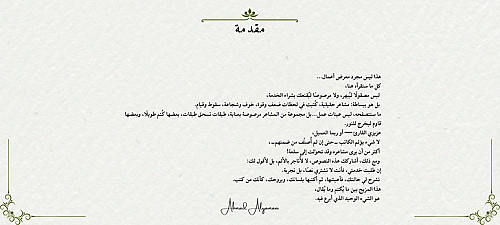 مقدمة
هذا ليس مجرد معرض أعمال...
كل ما ستقرأه هنا،
ليس مصقولًا ليُبهر، ولا مرصوصًا ليُقنعك بشراء الخدمة،
بل هو ببساطة: مشاعر حقيقية، كُتبت في لحظات ضعف وقوة، خوف وشجاعة، سقوط وقيام.
ما ستتصفحه، ليس عينات عمل... بل مجموعة من المشاعر مرصوصة بعناية، طبقات تسحق طبقات، بعضها كُتم طويلًا، وبعضها
قاوم ليخرج للنور.
عزيزي القارئ — أو ربما العميل،
لا شيء يؤلم الكاتب – حتى إن لم أُصنّف من ضمنهم...
أكثر من أن يرى مشاعره وقد تحولت إلى سلعة!
ومع ذلك، أشاركك هذه النصوص، لا لأتاجر بالألم، بل لأقول لك:
إن طلبت خدمتي، فأنت لا تشتري نصًا، بل تجربة.
تشرح لي حالتك، فأعيشها، ثم أكتبها بلسانك، وبروحك، كأنك من كتب.
هذا المزيج بين ما يُكتم وما يُقال،
هو الشيء الوحيد الذي أبرع فيه.